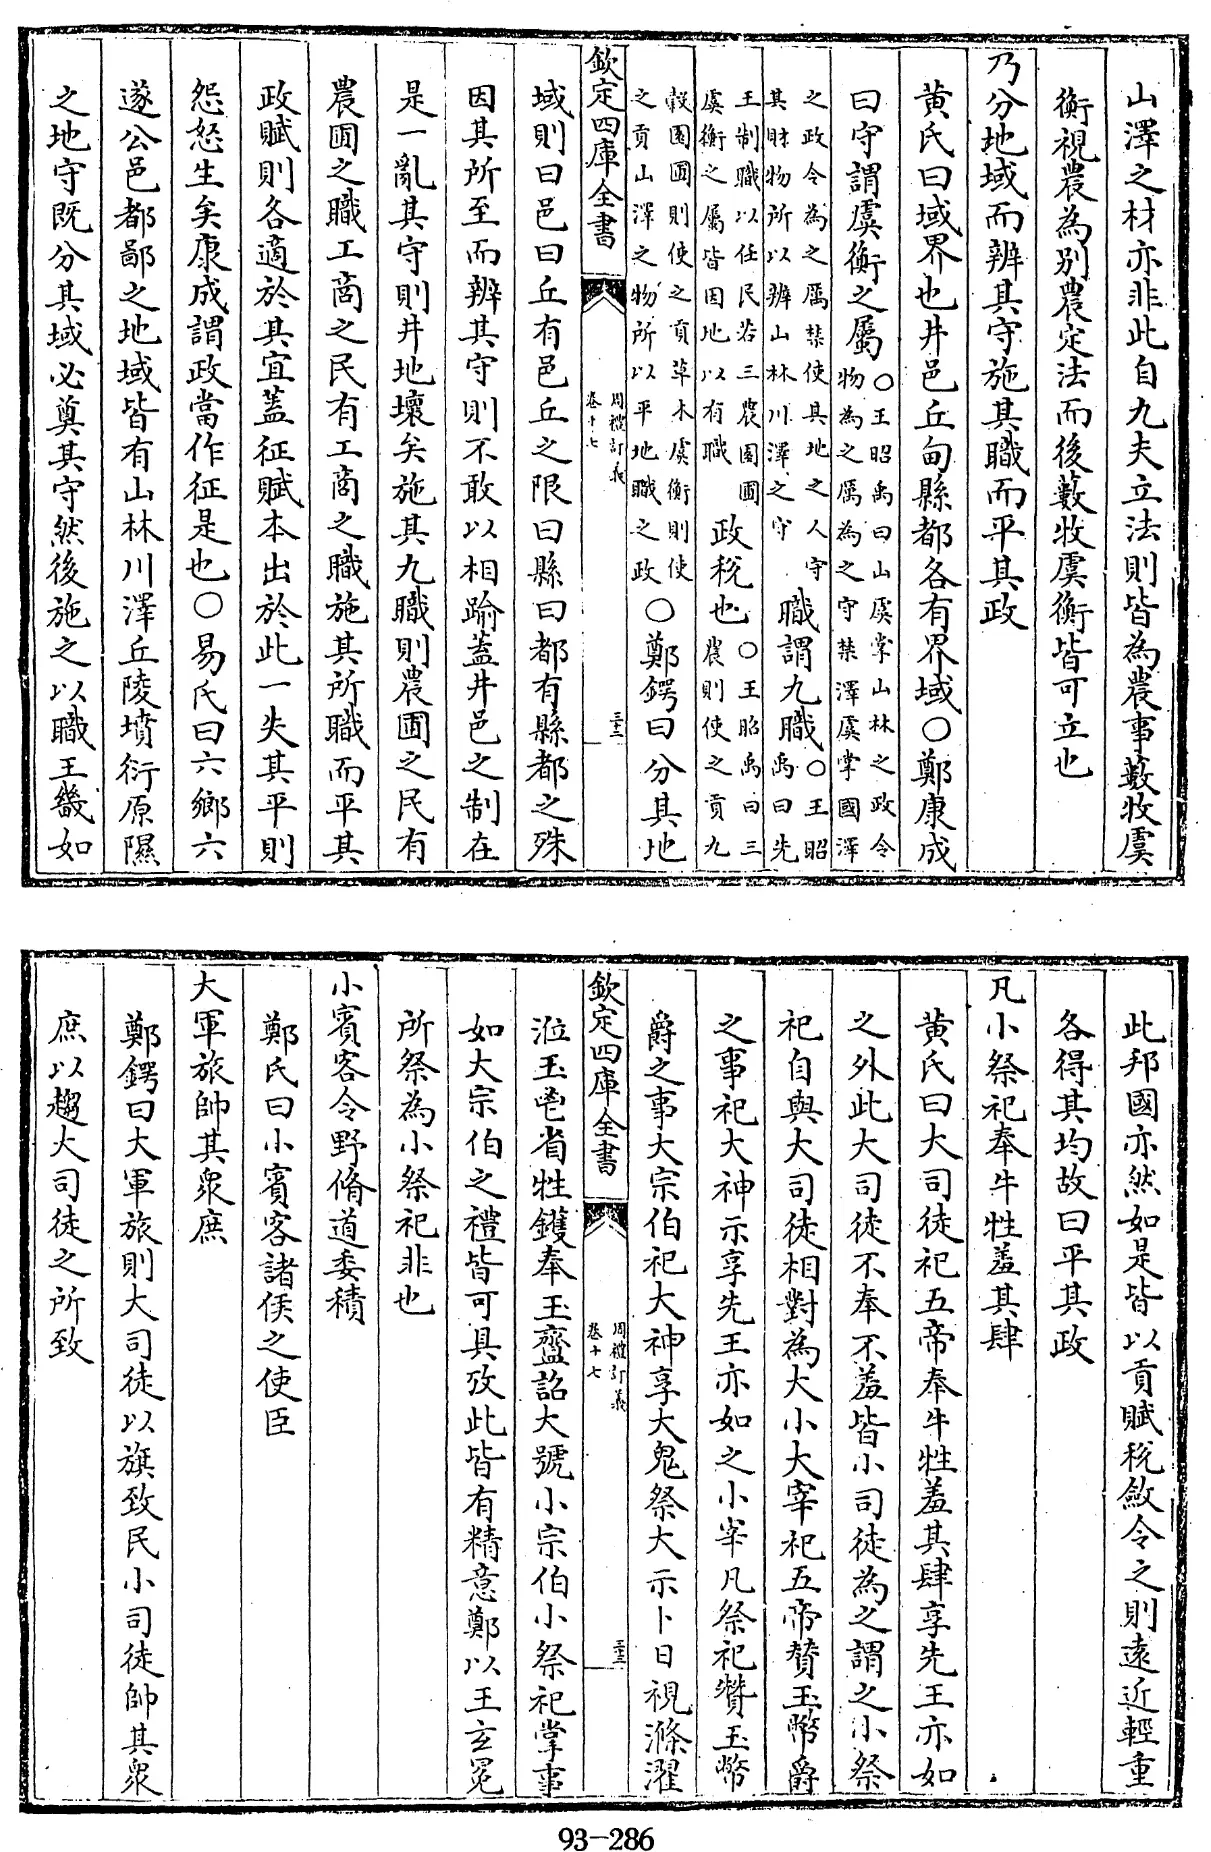 山澤之材亦非此自九夫立法則皆為農事藪牧虞
衡視農為別農定法而後藪牧虞衡皆可立也
乃分地域而辨其守施其職而平其政
黃氏曰域界也井邑丘甸縣都各有界域○鄭康成
曰守謂虞衡之屬○王昭禹曰山虞掌山林之政令物為之厲為之守禁澤虞掌國澤
之政令為之厲禁使其地之人守其財物所以辨山林川澤之守職謂九職○王昭禹曰先
王制職以任民若三農園圃虞衡之屬皆因地以有職政稅也○王昭禹曰三農則使之貢九
穀園圃則使之貢草木虞衡則使之貢山澤之物所以平地職之政○鄭鍔曰分其地
欽定四庫全書 周禮訂義 卷十七 三十二
域則曰邑曰丘有邑丘之限曰縣曰都有縣都之殊
因其所至而辨其守則不敢以相踰蓋井邑之制在
是一亂其守則井地壞矣施其九職則農圃之民有
農圃之職工商之民有工商之職施其所職而平其
政賦則各適於其宜蓋征賦本出於此一失其平則
怨怒生矣康成謂政當作征是也○易氏曰六鄉六
遂公邑都鄙之地域皆有山林川澤丘陵墳衍原隰
之地守既分其域必奠其守然後施之以職王畿如
此邦國亦然如是皆以貢賦稅斂令之則遠近輕重
各得其均故曰平其政
凡小祭祀奉牛牲羞其肆
黃氏曰大司徒祀五帝奉牛牲羞其肆享先王亦如
之外此大司徒不奉不羞皆小司徒為之謂之小祭
祀自與大司徒相對為大小大宰祀五帝贊玉幣爵
之事祀大神示享先王亦如之小宰凡祭祀贊玉幣
爵之事大宗伯祀大神享大鬼祭大示卜日視滌濯
欽定四庫全書 周禮訂義 卷十七 三十三
涖玉鬯省牲鑊奉玉齍詔大號小宗伯小祭祀掌事
如大宗伯之禮皆可具攷此皆有精意鄭以王玄冕
所祭為小祭祀非也
小賓客令野脩道委積
鄭氏曰小賓客諸侯之使臣
大軍旅帥其衆庶
鄭鍔曰大軍旅則大司徒以旗致民小司徒帥其衆
庶以趨大司徒之所致
93-286